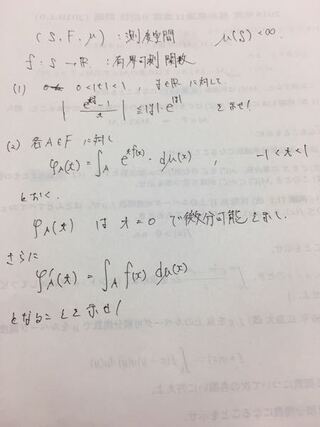 (S, F, μ) : 測度空間 μ(S) < ∞.
f : S → R : 有界可測関数
(1) 0 < |t| < 1 , y ∈ R に対して
| (e^{ty} - 1) / t | ≦ |y| · e^{|y|} を示せ!
(2) 各 A ∈ F に対し
φ_A(t) = ∫_A e^{tf(x)} · dμ(x) , -1 < t < 1
とおく
φ_A(t) は t = 0 で微分可能を示し.
さらに
φ'_A(t) = ∫_A f(x) dμ(x)
となることを示せ!